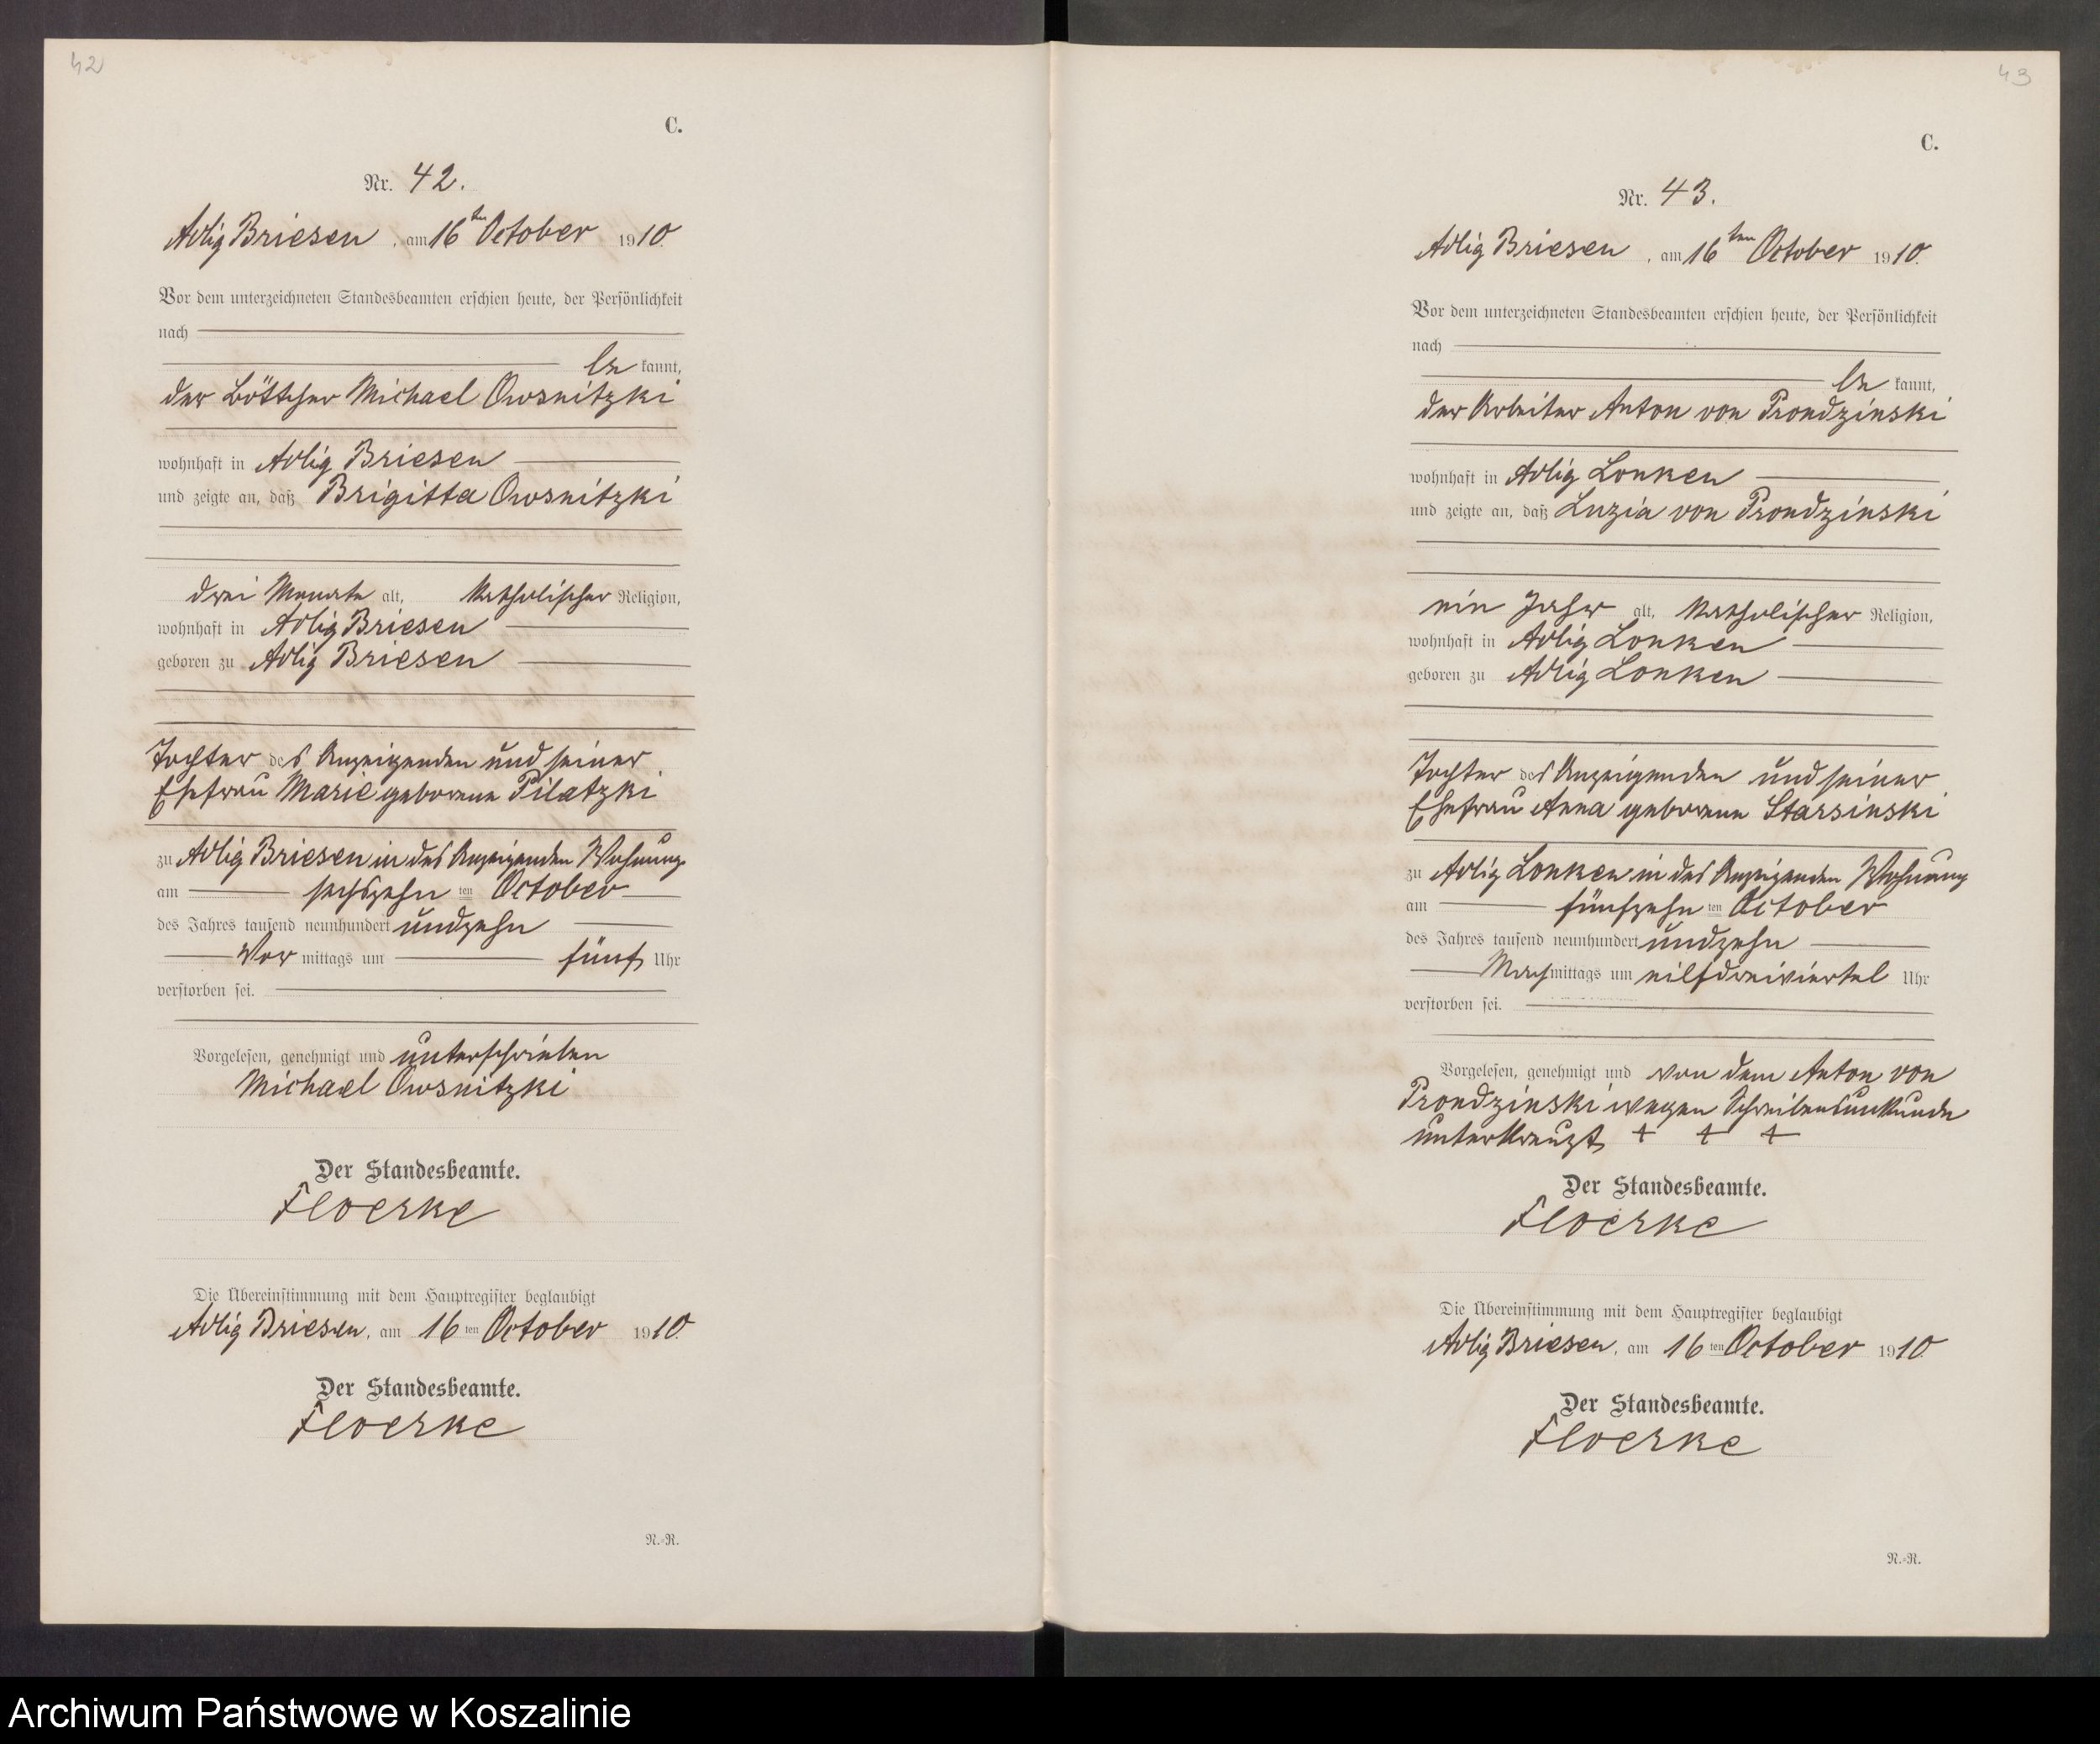 42
C.
Nr. 42.
Adlig Briesen, am 16ten October 1910.
Vor dem unterzeichneten Standesbeamten erschien heute, der Persönlichkeit
nach
be kannt,
der Böttcher Michael Owsnitzki
wohnhaft in Adlig Briesen
und zeigte an, daß Brigitta Owsnitzki
drei Monate alt, katholischer Religion,
wohnhaft in Adlig Briesen
geboren zu Adlig Briesen
Tochter des Anzeigenden und seiner
Ehefrau Marie geborene Pilatzki
zu Adlig Briesen in des Anzeigenden Wohnung
am sechszehn ten October
des Jahres tausend neunhundert undzehn
Vor mittags um fünf Uhr
verstorben sei.
Vorgelesen, genehmigt und unterschrieben
Michael Owsnitzki
Der Standesbeamte.
Floerke
Die Übereinstimmung mit dem Hauptregister beglaubigt
Adlig Briesen, am 16 ten October 1910.
Der Standesbeamte.
Floerke
N.-R.
43
C.
Nr. 43.
Adlig Briesen, am 16ten October 1910.
Vor dem unterzeichneten Standesbeamten erschien heute, der Persönlichkeit
nach
be kannt,
der Arbeiter Anton von Prondzinski
wohnhaft in Adlig Lonken
und zeigte an, daß Luzia von Prondzinski
ein Jahr alt, katholischer Religion,
wohnhaft in Adlig Lonken
geboren zu Adlig Lonken
Tochter des Anzeigenden und seiner
Ehefrau Anna geborene Starsinski
zu Adlig Lonken in des Anzeigenden Wohnung
am fünfzehn ten October
des Jahres tausend neunhundert undzehn
Nach mittags um eilfdreiviertel Uhr
verstorben sei.
Vorgelesen, genehmigt und von dem Anton von
Prondzinski wegen Schreibensunkunde
unterkreuzt + + +
Der Standesbeamte.
Floerke
Die Übereinstimmung mit dem Hauptregister beglaubigt
Adlig Briesen, am 16 ten October 1910.
Der Standesbeamte.
Floerke
N.-R.
Archiwum Państwowe w Koszalinie